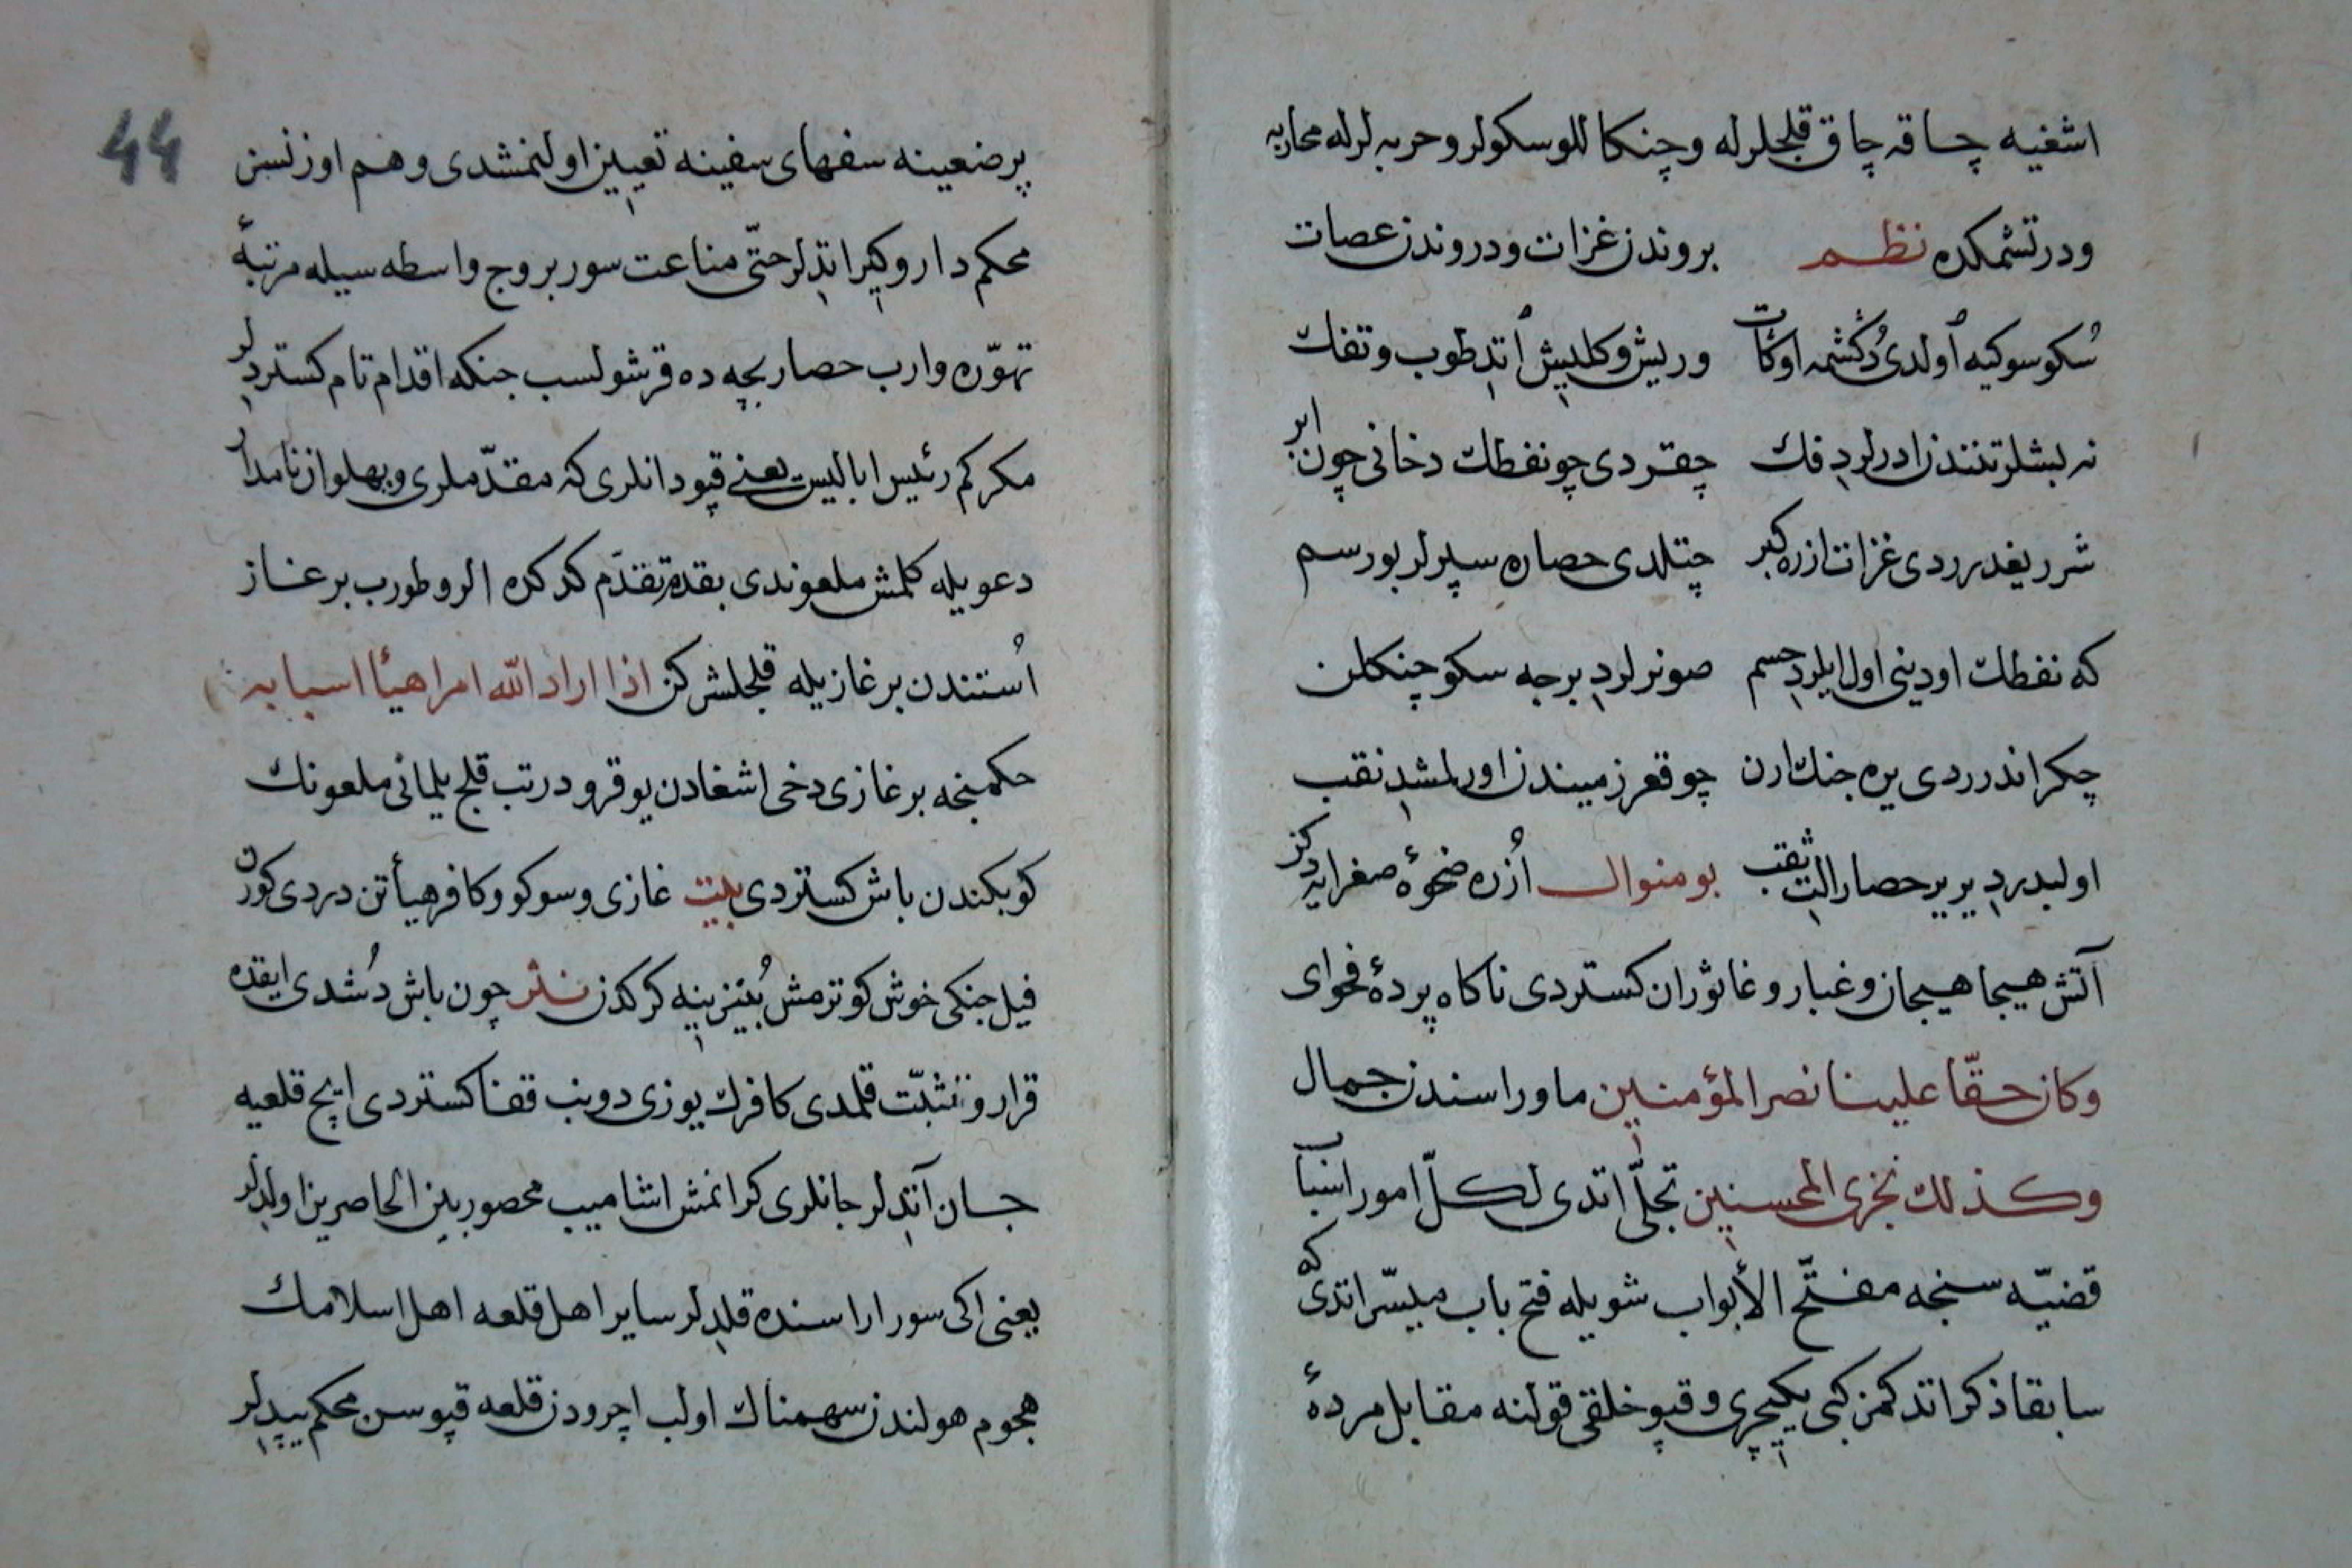 اشغیه چاقه چاق قلجلرله وچنکاللو سکولر وحربه لرله محاربه
ودرتشمکده نظم بروندن غزات ودروندن عصات
سُکو سوکیه اُولدی دُکشمه اوکات وریش وکلیش اُتدِ طوب وتفك
نه لبشلر تنندن ادرلردِ فك چقردی چو نفطك دخانی چون ابر
شرریغدرردی غزات ازره کبر چتلدی حصاره سپرلر بورسم
که نفطك اودینی اول ایلردِ حسم صونرلردِ برجه سکو چنکلن
چکر اندرردی یره جنك ارن چو قعر زمیندن اورلمشدِ نقب
اولبدردِ یر یر حصار التِ ثقب بو منوال اُزره ضحوهٔ صغرایه دکز
آتش هیجا هیجان وغبار وغا ثوران کستردی ناکاه پردهٔ فحوای
وكان حقّا علينا نصر المؤمنين ماوراسندن جمال
وكذلك نجزى المحسنين تجلّی اتدی لكلّ امور اسباب
قضیّه سنجه مفتّح الأبواب شویله فتح باب میسّر اتدی که
سابقا ذکر اتدکمز کبی یکیچری وقپو خلقی قولنه مقابل مردهٔ
44
پرضعینه سفهای سفینه تعیین اولنمشدی وهم اوزنسن
محکم دار وکیر اتدِلر حتّی مناعت سور بروج واسطه سیله مرتبهٔ
تهوّره وارب حصار بچه ده قرشولسب جنکه اقدام تام کستردِلر
مکرکم رئیس ابالیس یعنی قپودانلری که مقدّملری وپهلوان نامدار
دعویله کلمش ملعوندی بقدم تقدّم کدکده الرو طورب بر غاز
اُستندن بر غازیله قلجلشرکن اذا اراد الله امرا هيأ اسبابه
حکمنجه بر غازی دخی اشغادن یوقرو درتب قلج یلمانی ملعونك
کوبکندن باش کستردی بیت غازی وسوکو وکافر هیأتن دردی کورن
فیل جنکی خوش کوترمش بُینزینه کرکدن نثر چون باش دُشدی ایقده
قرار وتثبّت قلمدی کافرك یوزی دونب قفا کستردی ایچ قلعیه
جسان آتدِلر جانلری کرانمش اشامیب محصور بین الحاصرین اولدِلر
یعنی اکی سور اراسنده قلدِلر سایر اهل قلعه اهل اسلامك
هجوم هولندن سهمناك اولب اچرودن قلعه قپوسن محکم یپدِلر